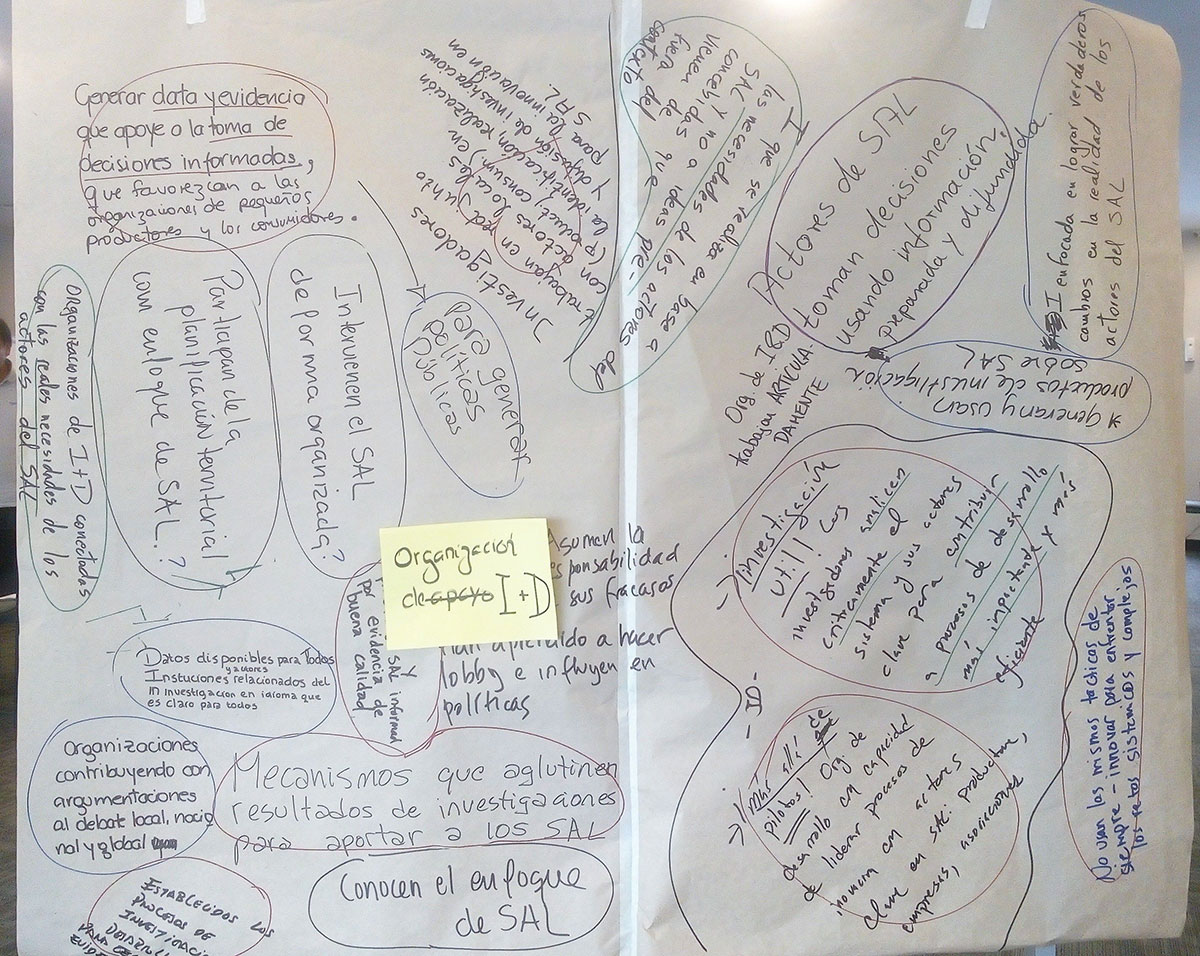 Generar data y evidencia
que apoye a la toma de
decisiones informadas,
que favorezcan a las
organizaciones de pequeños
productores y los consumidores.
Investigadores
trabajan en red junto
con actores locales en
la identificación, realización
y difusión de investigaciones
para la innovación en
SAL
I que se realiza en base a
las necesidades de los actores del
SAL y no a ideas pre-
concebidas que
vienen de
fuera del
contexto
Actores de SAL
toman decisiones
usando información,
preparada y difundida.
I enfocada en lograr verdaderos
cambios en la realidad de los
actores del SAL
* generan y usan
productos de investigación
sobre SAL
Org. de I&D
trabajan ARTICULA
DAMENTE
Para generar
políticas
públicas
Intervienen el SAL
de forma organizada?
Participan de la
planificación territorial
con enfoque de SAL.?
Organizaciones de I+D conectadas
con las reales necesidades de los
actores del SAL
Organización
de apoyo I+D
Asumen la
responsabilidad
sus fracasos
Han aprendido a hacer
lobby e influyen en
políticas
y
SAL informan
por evidencia de
buena calidad
Datos disponibles para Todos
y actores
Instuciones relacionados del
in investigacion en idioma que
es claro para todos
Organizaciones
contribuyendo con
argumentaciones
al debate local, nacio
nal y global
Mecanismos que aglutinen
resultados de investigaciones
para aportar a los SAL
Conocen el enfoque
de SAL
ESTABLECIDOS LOS
PROCESOS DE
INVESTIGACIÓN
PARA
-I-
¡investigación
util! Los
investigadores analicen
criticamente el
sistema y sus actores
clave para contribuir
a procesos de desarrollo
mas impactante y más
eficiente
-D-
¡Más allá de
pilotos! Org. de
desarrollo con capacidad
de liderar procesos de
inovación con actores
clave en SAL: productore,
empresas, asociaciones
No usan las mismos tacticos de
siempre - innovar para enfrentar
los retos sistemicos y complejos